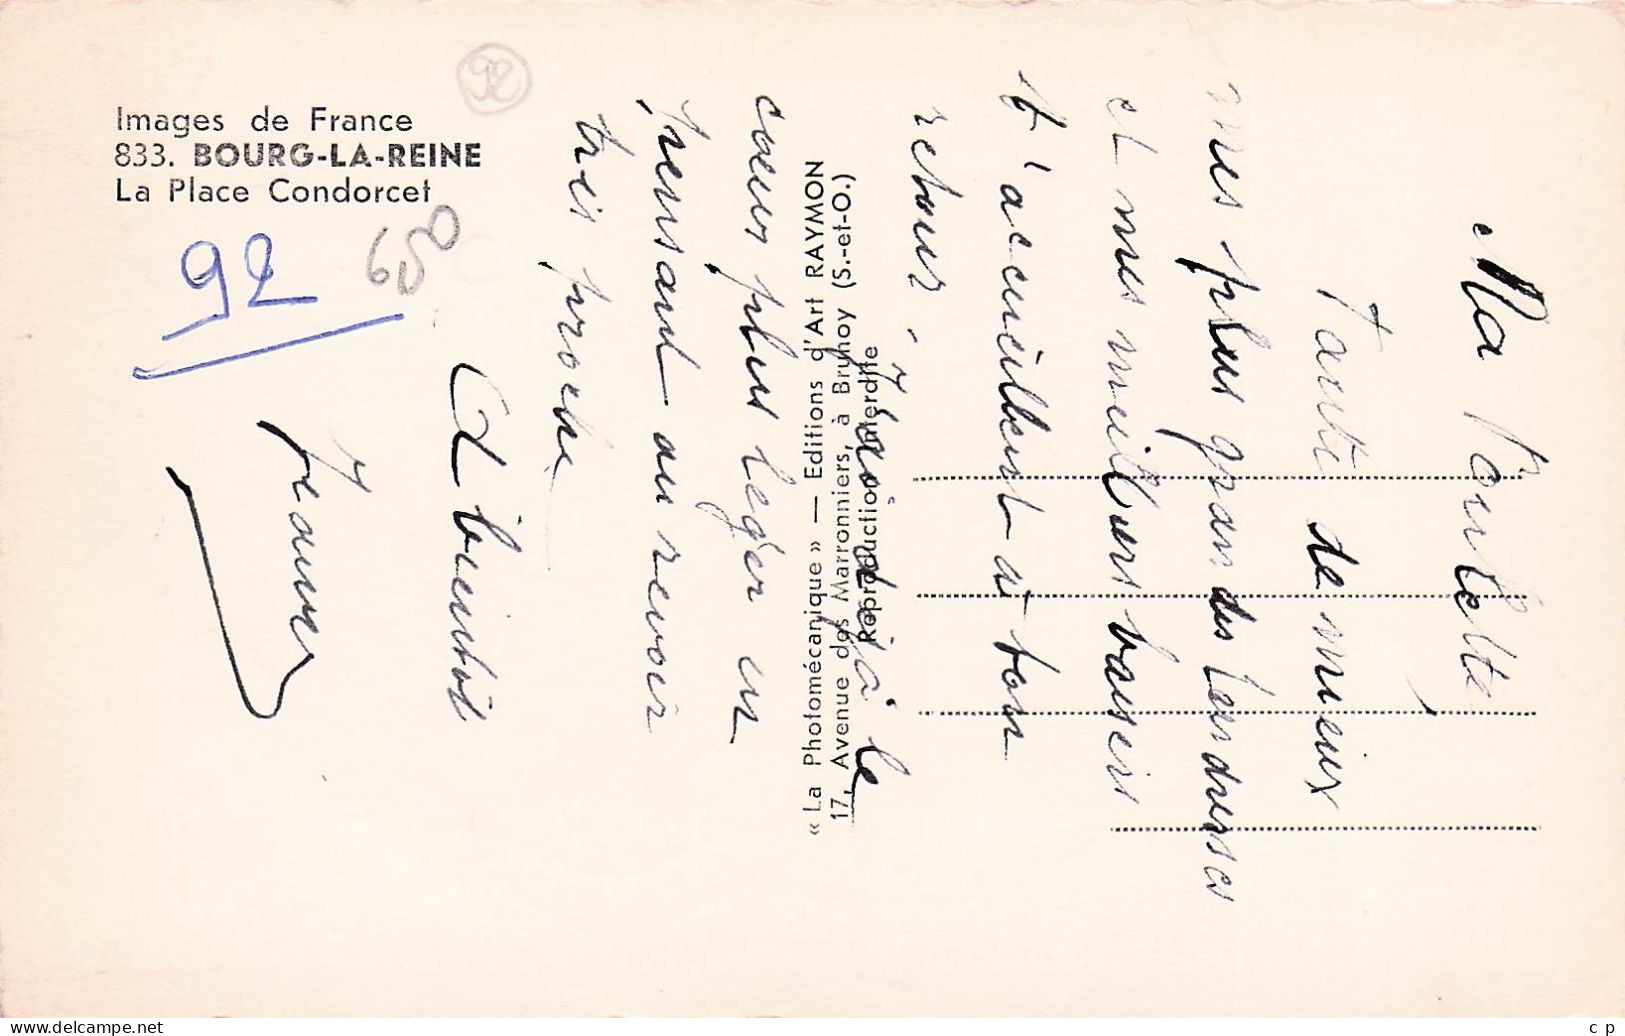 Images de France
833. BOURG-LA-REINE
La Place Condorcet
92
92
650
« La Photomécanique » — Editions d'Art RAYMON
17, Avenue des Marronniers, à Brunoy (S.-et-O.)
Reproduction interdite
Ma
Tante de mieux
mes plus grandes tendresses
et mes meilleurs baisers
t'accueillent à ton
retour.
J'ai déjà le
cœur plus leger en
pensant au revoir
très proche
A bientôt
Jeanne
www.delcampe.net
c p